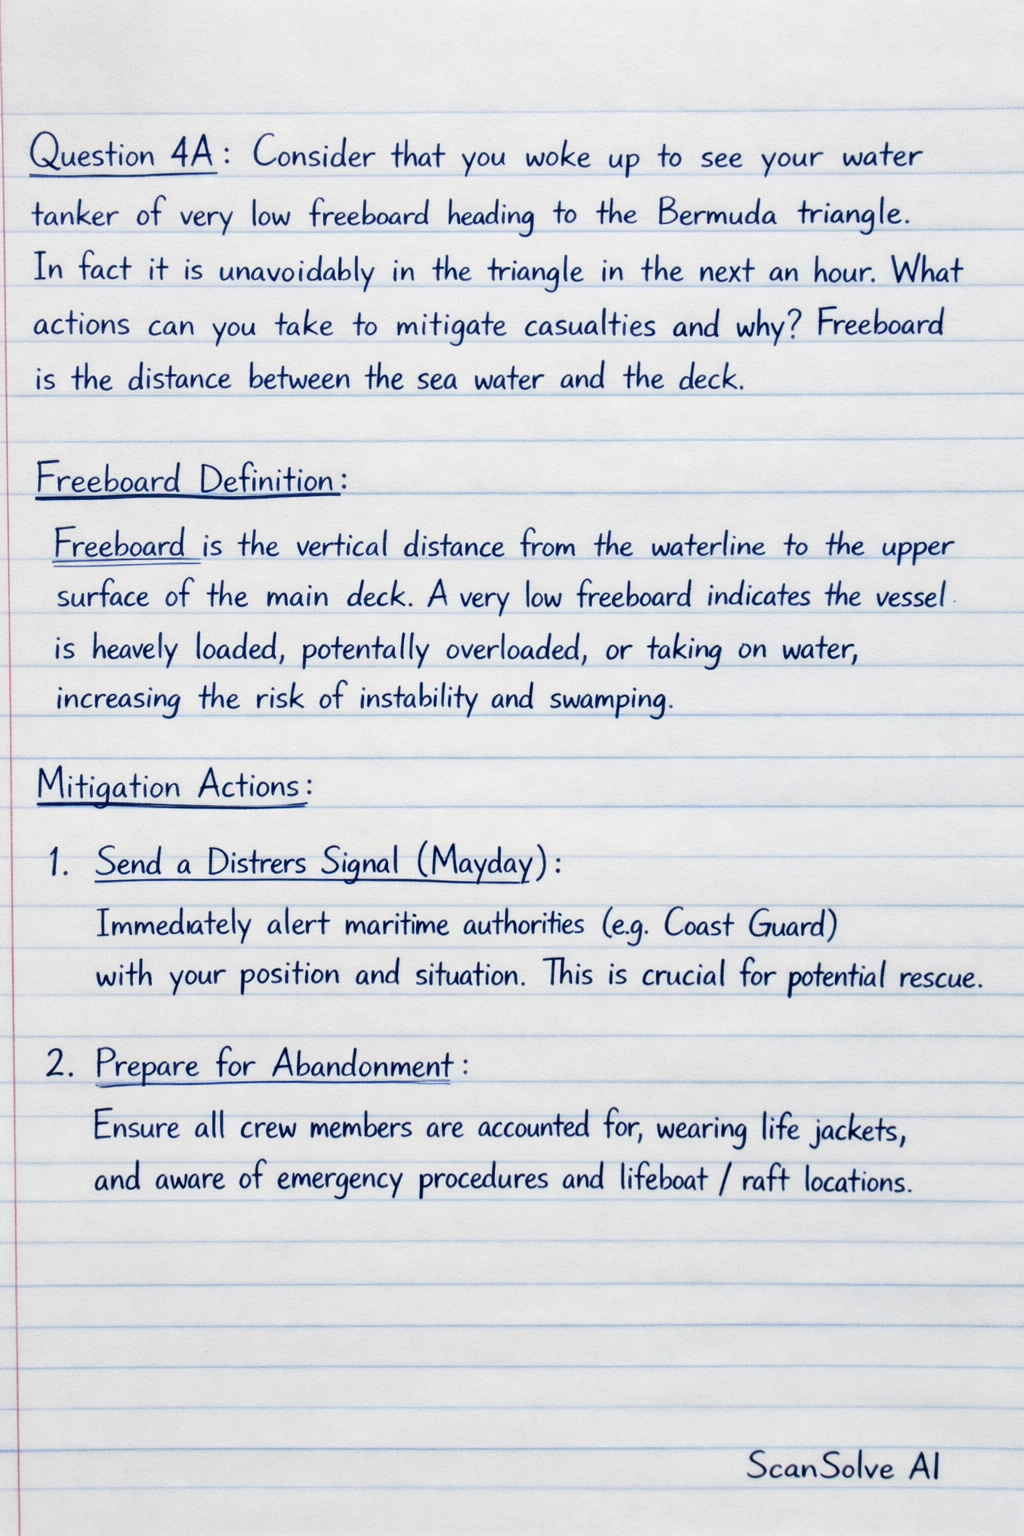 Question 4A: Consider that you woke up to see your water
tanker of very low freeboard heading to the Bermuda triangle.
In fact it is unavoidably in the triangle in the next an hour. What
actions can you take to mitigate casualties and why? Freeboard
is the distance between the sea water and the deck.
Freeboard Definition:
Freeboard is the vertical distance from the waterline to the upper
surface of the main deck. A very low freeboard indicates the vessel
is heavely loaded, potentally overloaded, or taking on water,
increasing the risk of instability and swamping.
Mitigation Actions:
1. Send a Distrers Signal (Mayday):
Immediately alert maritime authorities (e.g. Coast Guard)
with your position and situation. This is crucial for potential rescue.
2. Prepare for Abandonment:
Ensure all crew members are accounted for, wearing life jackets,
and aware of emergency procedures and lifeboat / raft locations.
ScanSolve AI